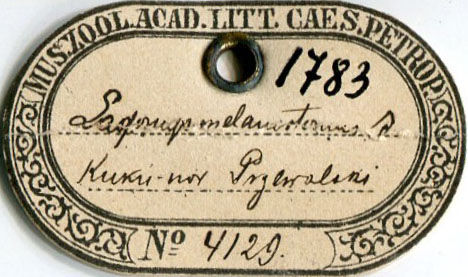 MUS.ZOOL.ACAD.LITT.CAES.PETROP.
1783
Lagomys melanostomus
Kuku-nor Przewalski
No 4129.